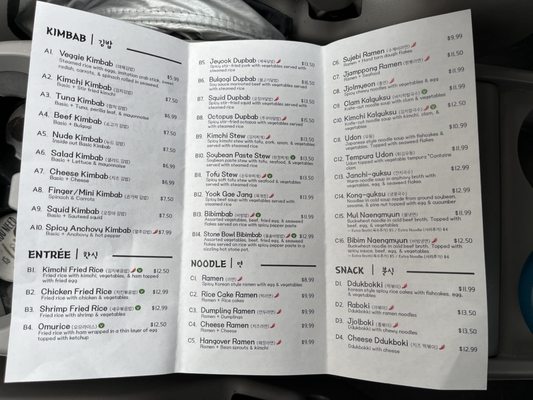 KIMBAB | 김밥
A1. Veggie Kimbab (야채김밥) $5.99
Steamed rice with egg, imitation crab stick, sweet
radish, carrots, & spinach rolled in seaweed.
A2. Kimchi Kimbab (김치김밥)
Basic + Stir fried kimchi $7.50
A3. Tuna Kimbab (참치김밥)
Basic + Tuna, perilla leaf, & mayonnaise $6.99
A4. Beef Kimbab (소고기 김밥)
Basic + Bulgogi $7.50
A5. Nude Kimbab (누드 김밥)
Inside out Basic Kimbab $6.99
A6. Salad Kimbab (샐러드 김밥)
Basic + Lettuce & mayonnaise $6.99
A7. Cheese Kimbab (치즈 김밥)
Basic + Cheese $6.99
A8. Finger/Mini Kimbab (꼬마 김밥)
Spinach & Carrots $7.50
A9. Squid Kimbab (오징어 김밥)
Basic + Sauteed squid $7.50
A10. Spicy Anchovy Kimbab $7.99
Basic + Anchovy & hot pepper
ENTRÉE | 한식
B1. Kimchi Fried Rice (김치볶음밥) $12.50
Fried rice with kimchi, vegetables, & ham topped
with fried egg
B2. Chicken Fried Rice (치킨볶음밥) $12.99
Fried rice with chicken & vegetables
B3. Shrimp Fried Rice (새우볶음밥) $12.99
Fried rice with shrimp & vegetables
B4. Omurice (오므라이스) $12.50
Fried rice with ham wrapped in a thin layer of egg
topped with ketchup
B5. Jeyook Dupbab (제육덮밥)
Spicy stir-fried pork with vegetables served with
steamed rice $13.50
B6. Bulgogi Dupbab (불고기덮밥)
Soy sauce marinated beef with vegetables served
with steamed rice
B7. Squid Dupbab (오징어덮밥)
Spicy stir-fried squid with vegetables served with
steamed rice
B8. Octopus Dupbab
Spicy stir-fried octopus with vegetables served with
steamed rice
B9. Kimchi Stew (김치찌개)
Spicy kimchi stew with tofu, pork, spam, & vegetables
served with steamed rice
B10. Soybean Paste Stew (된장찌개) $12.50
Soybean paste stew with tofu, seafood, & vegetables
served with steamed rice
B11. Tofu Stew (순두부찌개) $13.50
Spicy soft tofu stew with seafood & vegetables
served with steamed rice
B12. Yook Gae Jang (육개장)
Spicy beef soup with vegetables served with
steamed rice
B13. Bibimbab (비빔밥)
Assorted vegetables, beef, fried egg, & seaweed
flakes served on rice with spicy pepper paste
B14. Stone Bowl Bibimbab (돌솥비빔밥)
Assorted vegetables, beef, fried egg, & seaweed
flakes served on rice with spicy pepper paste in a
sizzling hot stone pot
NOODLE | 면
C1. Ramen (라면) $8.99
Spicy Korean style ramen with egg & vegetables
C2. Rice Cake Ramen (떡라면) $9.99
Ramen + Rice cakes
C3. Dumpling Ramen (만두라면) $9.99
Ramen + Dumplings
C4. Cheese Ramen (치즈라면) $9.99
Ramen + Cheese
C5. Hangover Ramen (해장라면) $9.99
Ramen + Bean sprouts & kimchi
C6. Sujebi Ramen (수제비라면) $9.99
Ramen + Hand torn dough flakes
C7. Jjamppong Ramen (짬뽕라면) $11.50
Ramen + Seafood
C8. Jjolmyeon (쫄면) $11.50
Spicy chewy noodles with vegetables & egg
C9. Clam Kalguksu $11.50
Knife-cut noodle soup with clam & vegetables
C10. Kimchi Kalguksu (김치칼국수) $12.50
Knife-cut noodle soup with kimchi, clam, &
vegetables
C11. Udon (우동) $10.99
Japanese style noodle soup with fishcakes &
vegetables. Topped with seaweed
C12. Tempura Udon (튀김우동) $11.99
Udon topped with vegetable tempura *Contains
C13. Janchi-guksu (잔치국수) $12.99
Hand-made noodle in anchovy broth with
vegetables, egg, & seaweed flakes
C14. Kong-guksu (콩국수) $12.50
Noodles in cold soup made from ground soybean,
sesame, & pine nut topped with egg & cucumber
C15. Mul Naengmyun (물냉면) $11.99
Buckwheat noodle in cold beef broth. Topped with
beef, egg, & vegetables
C16. Bibim Naengmyun (비빔냉면) $12.50
Buckwheat noodle in cold beef broth. Topped with
spicy sauce, beef, egg, & vegetables
SNACK | 분식
D1. Ddukbokki (떡볶이) $11.99
Korean style spicy rice cakes with fishcakes, egg,
& vegetables
D2. Raboki (라볶이) $13.50
Ddukbokki with ramen noodles
D3. Jjolboki (쫄볶이) $13.50
Ddukbokki with chewy noodles
D4. Cheese Ddukbokki (치즈 떡볶이) $12.99
Ddukbokki with cheese